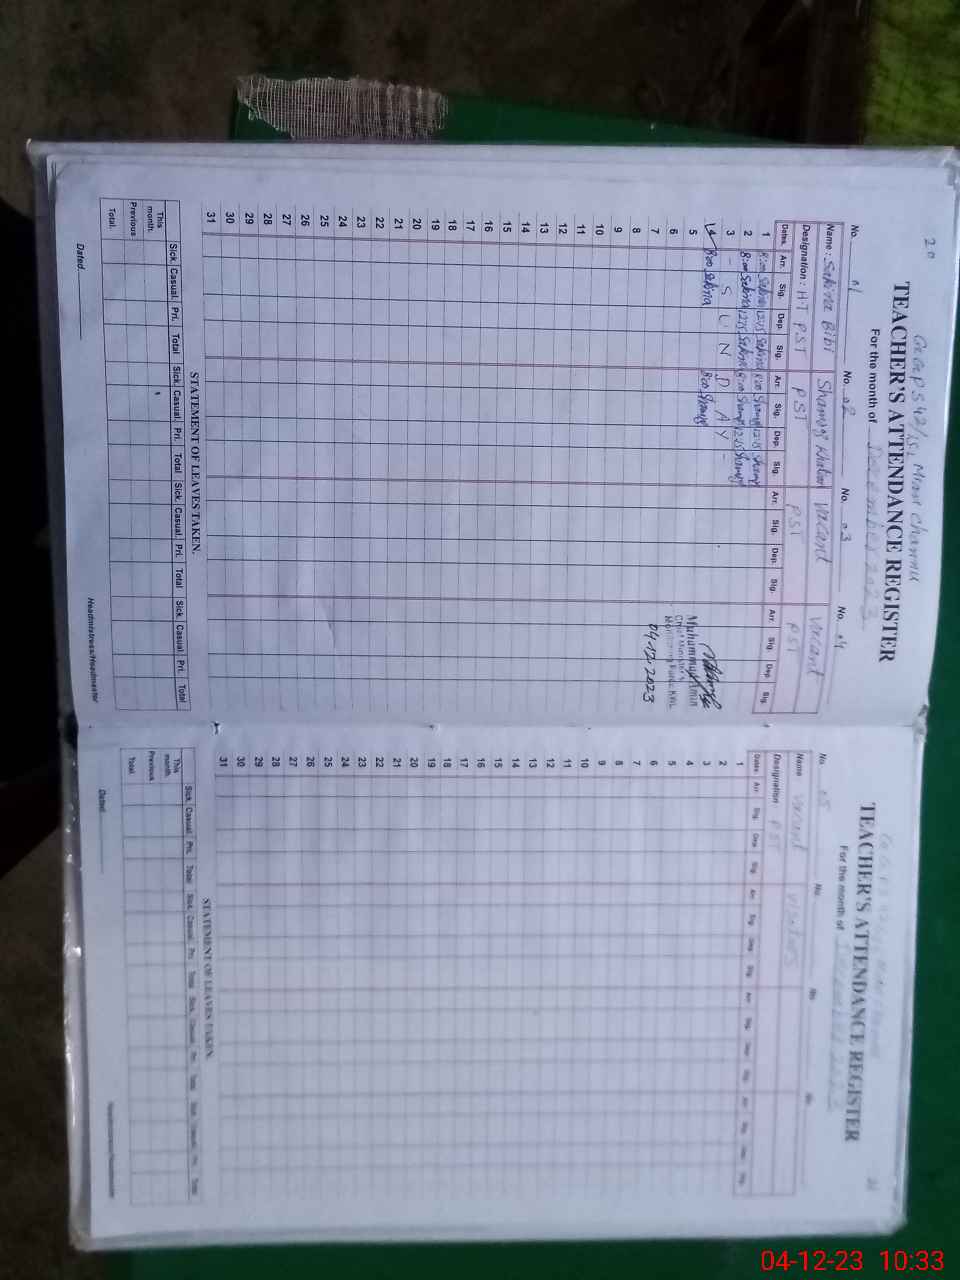 20
TEACHER'S ATTENDANCE REGISTER
For the month of December 2023
No. 01 No. 02 No. 03 No. 04
Name: Sakina Bibi Shamim Vacant Vacant
Designation: H.T PST PST PST PST
Dates. Arr. Sig. Dep. Sig. Arr. Sig. Dep. Sig. Arr. Sig. Dep. Sig. Arr. Sig. Dep. Sig.
1 8:00 Sakina 12:15 Sakina 8:00 12:15
2 8:00 Sakina 12:15 Sakina 8:00 12:15
3 - S U N D A Y -
4 8:00 Sakina 8:00
5
6
7
8
9
10
11
12
13
14
15
16
17
18
19
20
21
22
23
24
25
26
27
28
29
30
31
Muhammad Amin
Chief Minister's
04-12-2023
STATEMENT OF LEAVES TAKEN.
Sick. Casual. Pri. Total Sick. Casual. Pri. Total Sick. Casual. Pri. Total Sick. Casual. Pri. Total
This month.
Previous
Total.
Dated
Headmistress/Headmaster
TEACHER'S ATTENDANCE REGISTER
For the month of
No 05 No. No. No.
Name Vacant
Designation PST
Dates. Arr. Sig. Dep. Sig. Arr. Sig. Dep. Sig. Arr. Sig. Dep. Sig. Arr. Sig. Dep. Sig.
1
2
3
4
5
6
7
8
9
10
11
12
13
14
15
16
17
18
19
20
21
22
23
24
25
26
27
28
29
30
31
STATEMENT OF LEAVES TAKEN.
Sick. Casual. Pri. Total Sick. Casual. Pri. Total Sick. Casual. Pri. Total Sick. Casual. Pri. Total
This month.
Previous
Total.
Dated
Headmistress/Headmaster
04-12-23 10:33